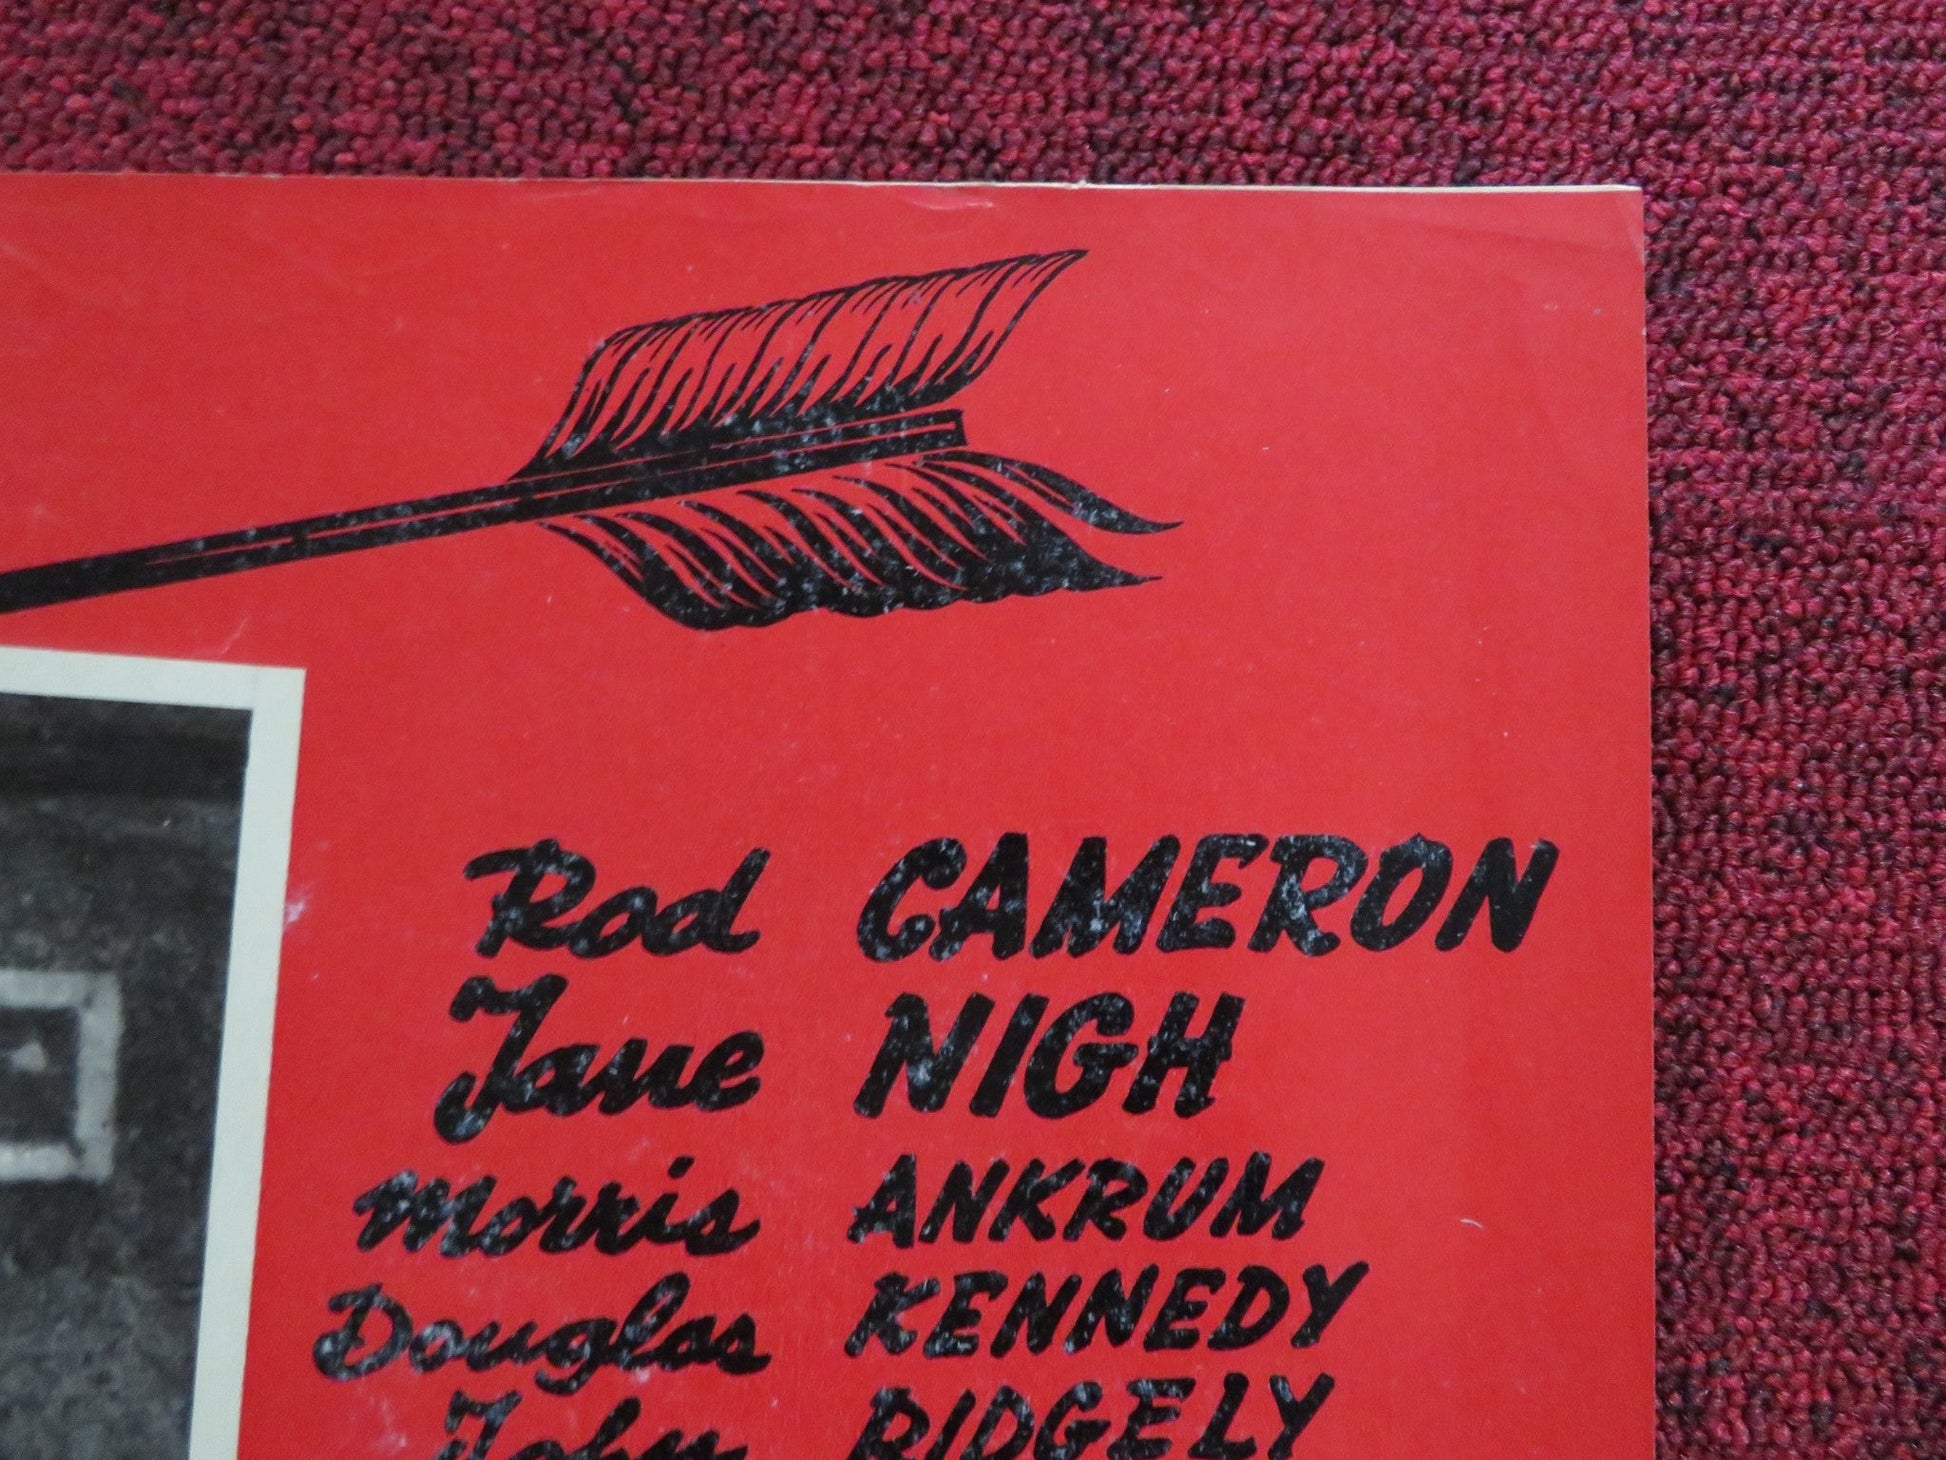 Rod CAMERON
Jane NIGH
Morris ANKRUM
Douglas KENNEDY
John RIDGELY